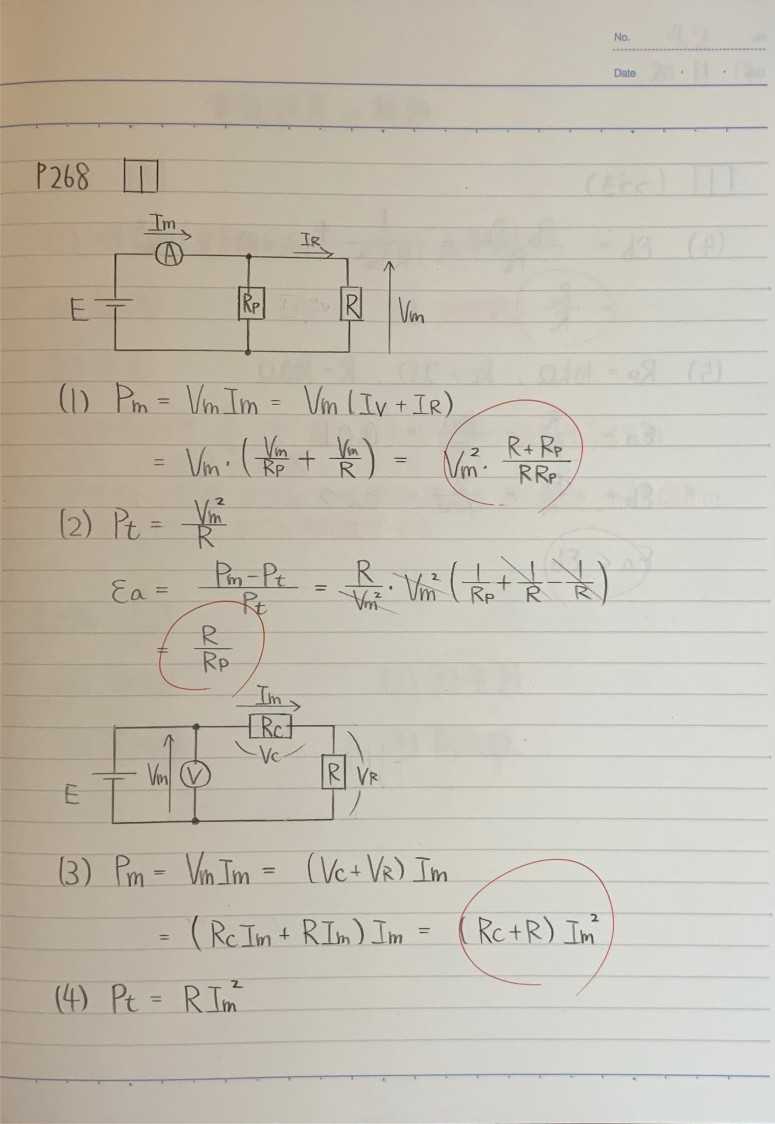 No.
Date
P268 1
Im
A
IR
E
Rp
R
Vm
(1) Pm = VmIm = Vm(Iv + IR)
= Vm・(Vm/Rp + Vm/R) = Vm²・(R+Rp)/(RRp)
(2) Pt = Vm²/R
εa = (Pm-Pt)/Pt = R/Vm²・Vm²(1/Rp + 1/R - 1/R)
= R/Rp
Im
Rc
Vc
E
Vm
V
R
VR
(3) Pm = VmIm = (Vc+VR)Im
= (RcIm + RIm)Im = (Rc+R)Im²
(4) Pt = RIm²